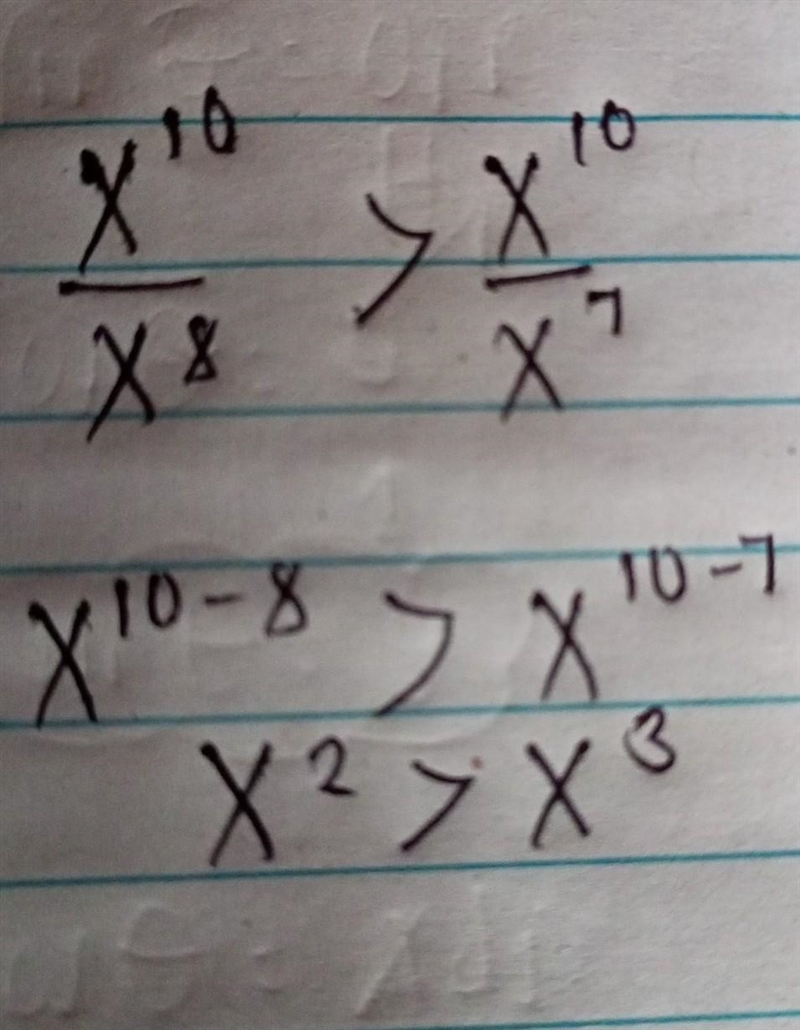 x¹⁰/x⁸ > x¹⁰/x⁷
x¹⁰⁻⁸ > x¹⁰⁻⁷
x² > x³